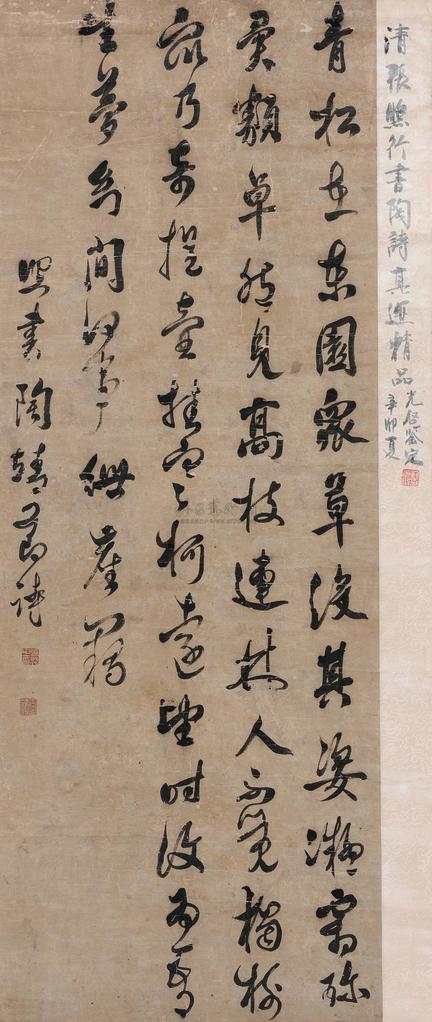 清張照行書陶詩真迹精品
辛卯夏
青松在東園衆草沒其姿凝霜殄
異類卓然見高枝連林人不覺獨樹
衆乃奇提壺挂寒柯遠望時復為吾
生夢幻間何事紲塵羈
照書陶靖節詩